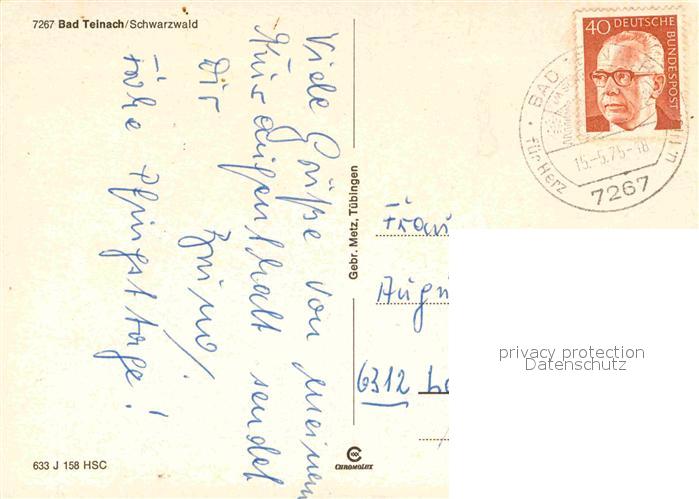 7267 Bad Teinach/Schwarzwald
Viele Grüße von meinem
Kuraufenthalt sendet
Dir
Bruno!
Frohe Pfingsttage!
Gebr. Metz, Tübingen
40 DEUTSCHE
BUNDESPOST
BAD
für Herz
15.-5.75-18
7267
Frau
6312
privacy protection
Datenschutz
633 J 158 HSC
CHROMOLUX